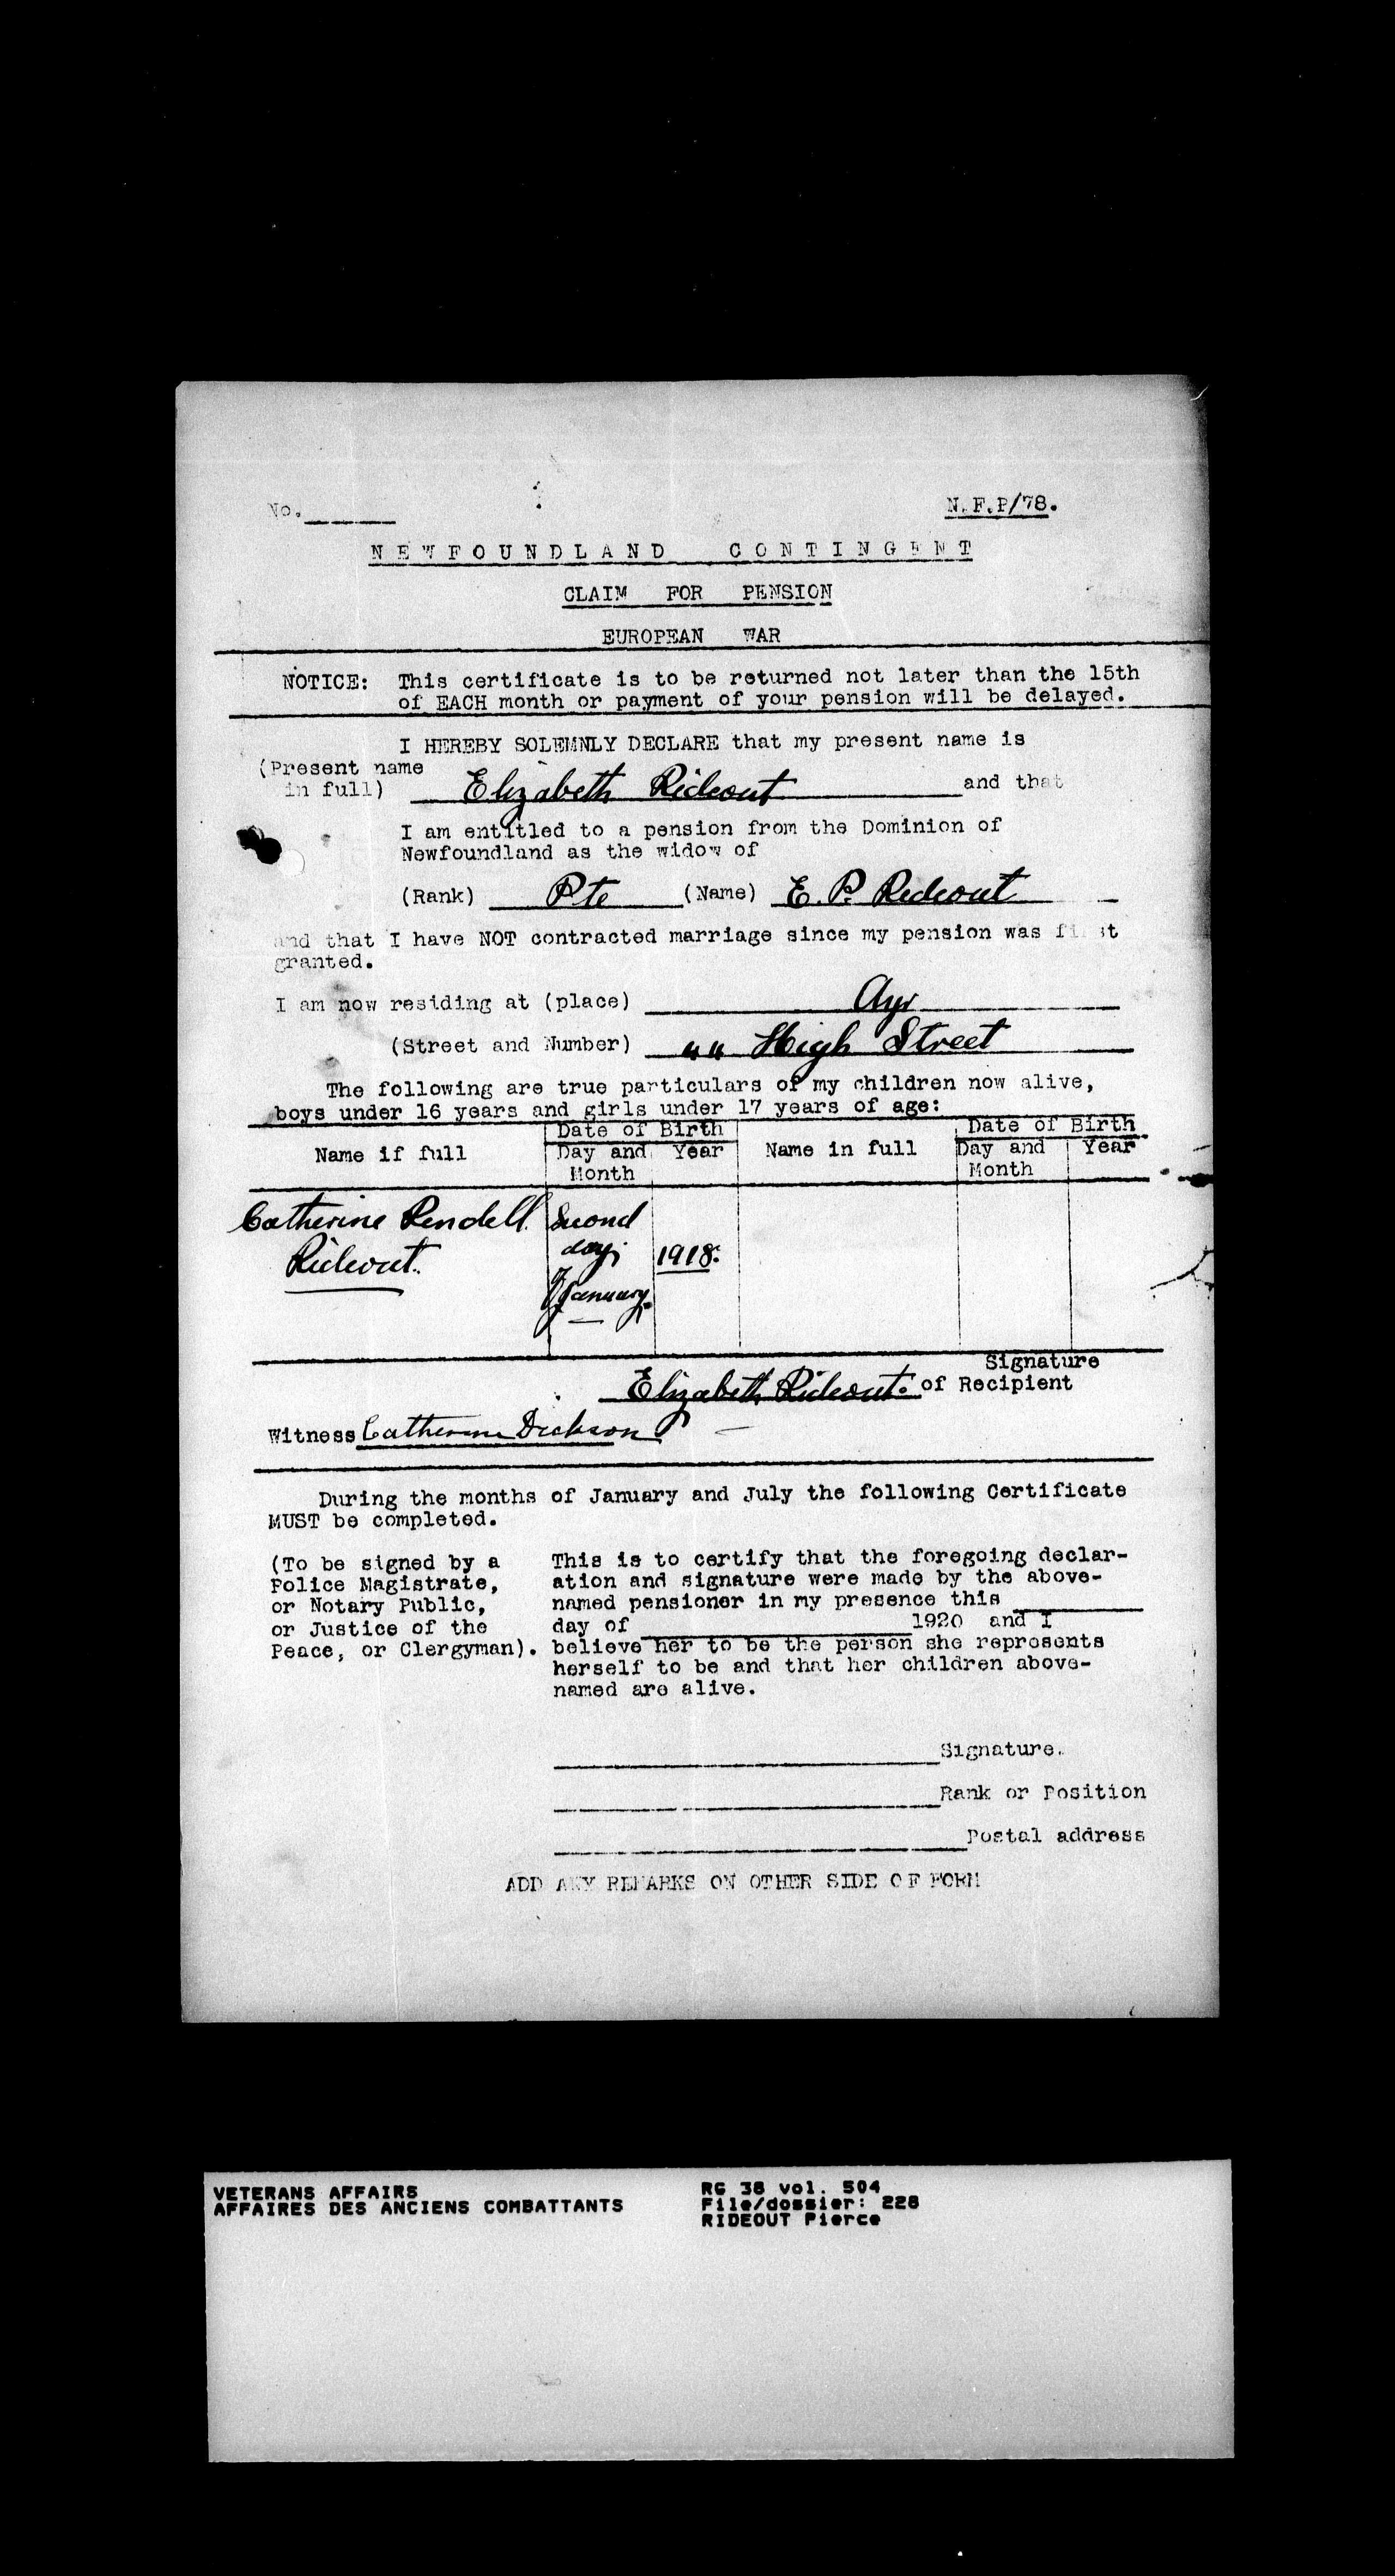 No.
N.F.P/78.
NEWFOUNDLAND CONTINGENT
CLAIM FOR PENSION
EUROPEAN WAR
NOTICE: This certificate is to be returned not later than the 15th
of EACH month or payment of your pension will be delayed.
I HEREBY SOLEMNLY DECLARE that my present name is
(Present name
in full) Elizabeth Rideout and that
I am entitled to a pension from the Dominion of
Newfoundland as the widow of
(Rank) Pte (Name) E. P. Rideout
and that I have NOT contracted marriage since my pension was first
granted.
I am now residing at (place) Ayr
(Street and Number) High Street
The following are true particulars of my children now alive,
boys under 16 years and girls under 17 years of age:
Name if full Date of Birth Name in full Date of Birth
Day and Year Day and Year
Month Month
Catherine Rendell Second
Rideout. day 1918.
of January.
Signature
Elizabeth Rideout. of Recipient
Witness Catherine Dickson
During the months of January and July the following Certificate
MUST be completed.
(To be signed by a This is to certify that the foregoing declar-
Police Magistrate, ation and signature were made by the above-
or Notary Public, named pensioner in my presence this
or Justice of the day of 1920 and I
Peace, or Clergyman). believe her to be the person she represents
herself to be and that her children above-
named are alive.
Signature.
Rank or Position
Postal address
ADD ANY REMARKS ON OTHER SIDE OF FORM
VETERANS AFFAIRS RG 38 vol. 504
AFFAIRES DES ANCIENS COMBATTANTS File/dossier: 228
RIDEOUT Pierce